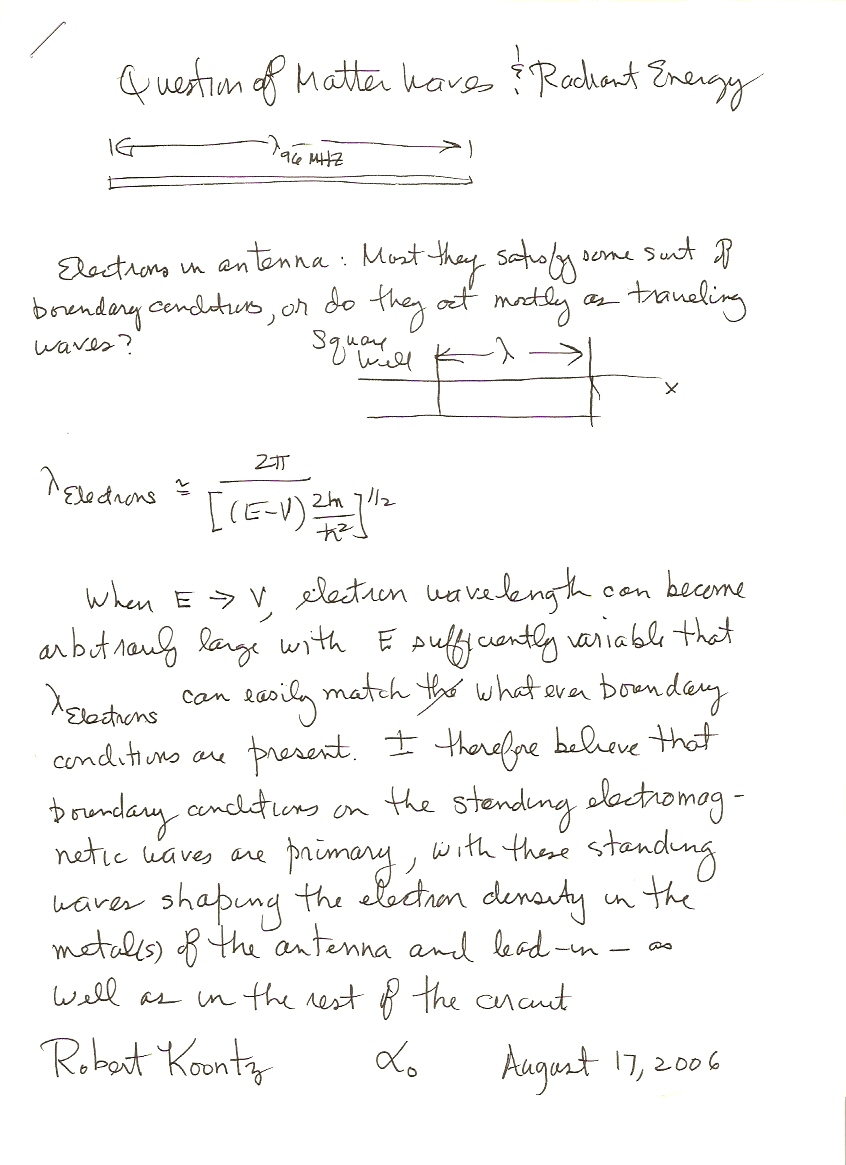 Question of Matter Waves & Radiant Energy
λ 96 MHZ
Electrons in antenna: Must they satisfy some sort of
boundary conditions, or do they act mostly as traveling
waves?
Square
Well
λ
x
λ Electrons ≅ 2π / [(E-V) 2m/ħ²]^1/2
When E → V, electron wavelength can become
arbitrarily large with E sufficiently variable that
λ Electrons can easily match the whatever boundary
conditions are present. I therefore believe that
boundary conditions on the standing electromag-
netic waves are primary, with these standing
waves shaping the electron density in the
metal(s) of the antenna and lead-in - as
well as in the rest of the circuit
Robert Koontz α₀ August 17, 2006